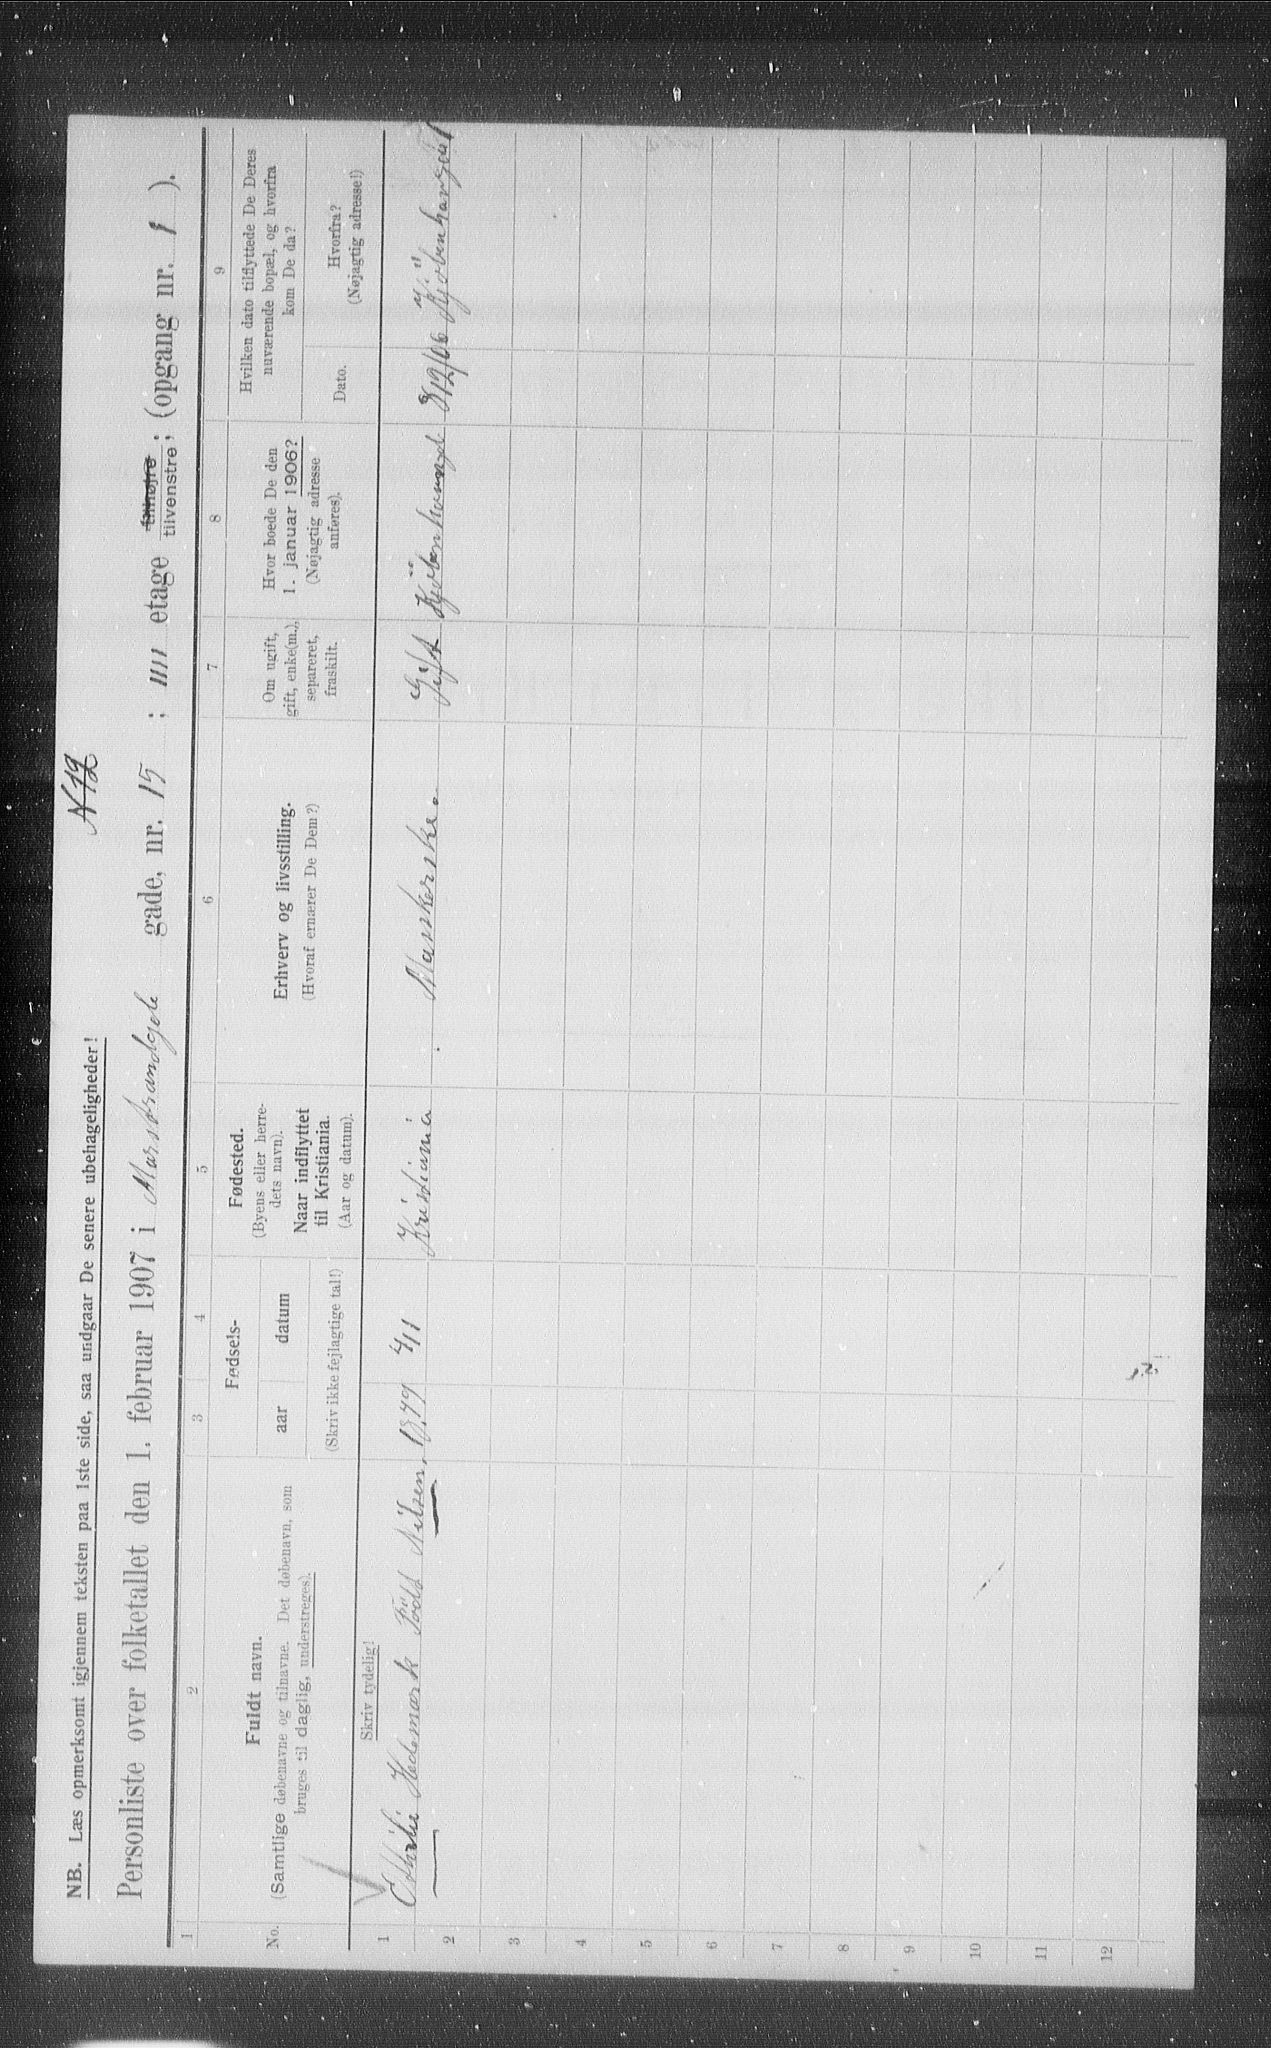 N 12
NB. Læs opmerksomt igjennem teksten paa 1ste side, saa undgaar De senere ubehageligheder!
Personliste over folketallet den 1. februar 1907 i Marstrandgt gade, nr. 15 ; IIII etage tilhøjre tilvenstre; (opgang nr. 1 ).
1 2 3 4 5 6 7 8 9
No.
Fuldt navn.
(Samtlige døbenavne og tilnavne. Det døbenavn, som
bruges til daglig, understreges).
Fødsels-
aar datum
(Skriv ikke fejlagtige tal!)
Fødested.
(Byens eller herre-
dets navn).
Naar indflyttet
til Kristiania.
(Aar og datum).
Erhverv og livsstilling.
(Hvoraf ernærer De Dem?)
Om ugift,
gift, enke(m.),
separeret,
fraskilt.
Hvor boede De den
1. januar 1906?
(Nøjagtig adresse
anføres).
Hvilken dato tilflyttede De Deres
nuværende bopæl, og hvorfra
kom De da?
Dato.
Hvorfra?
(Nøjagtig adresse!)
Skriv tydelig!
1 Hedemark Född Nilsen. 1879 4/11 Kristiania Gift Kjöbenhavn
2
3
4
5
6
7
8
9
10
11
12